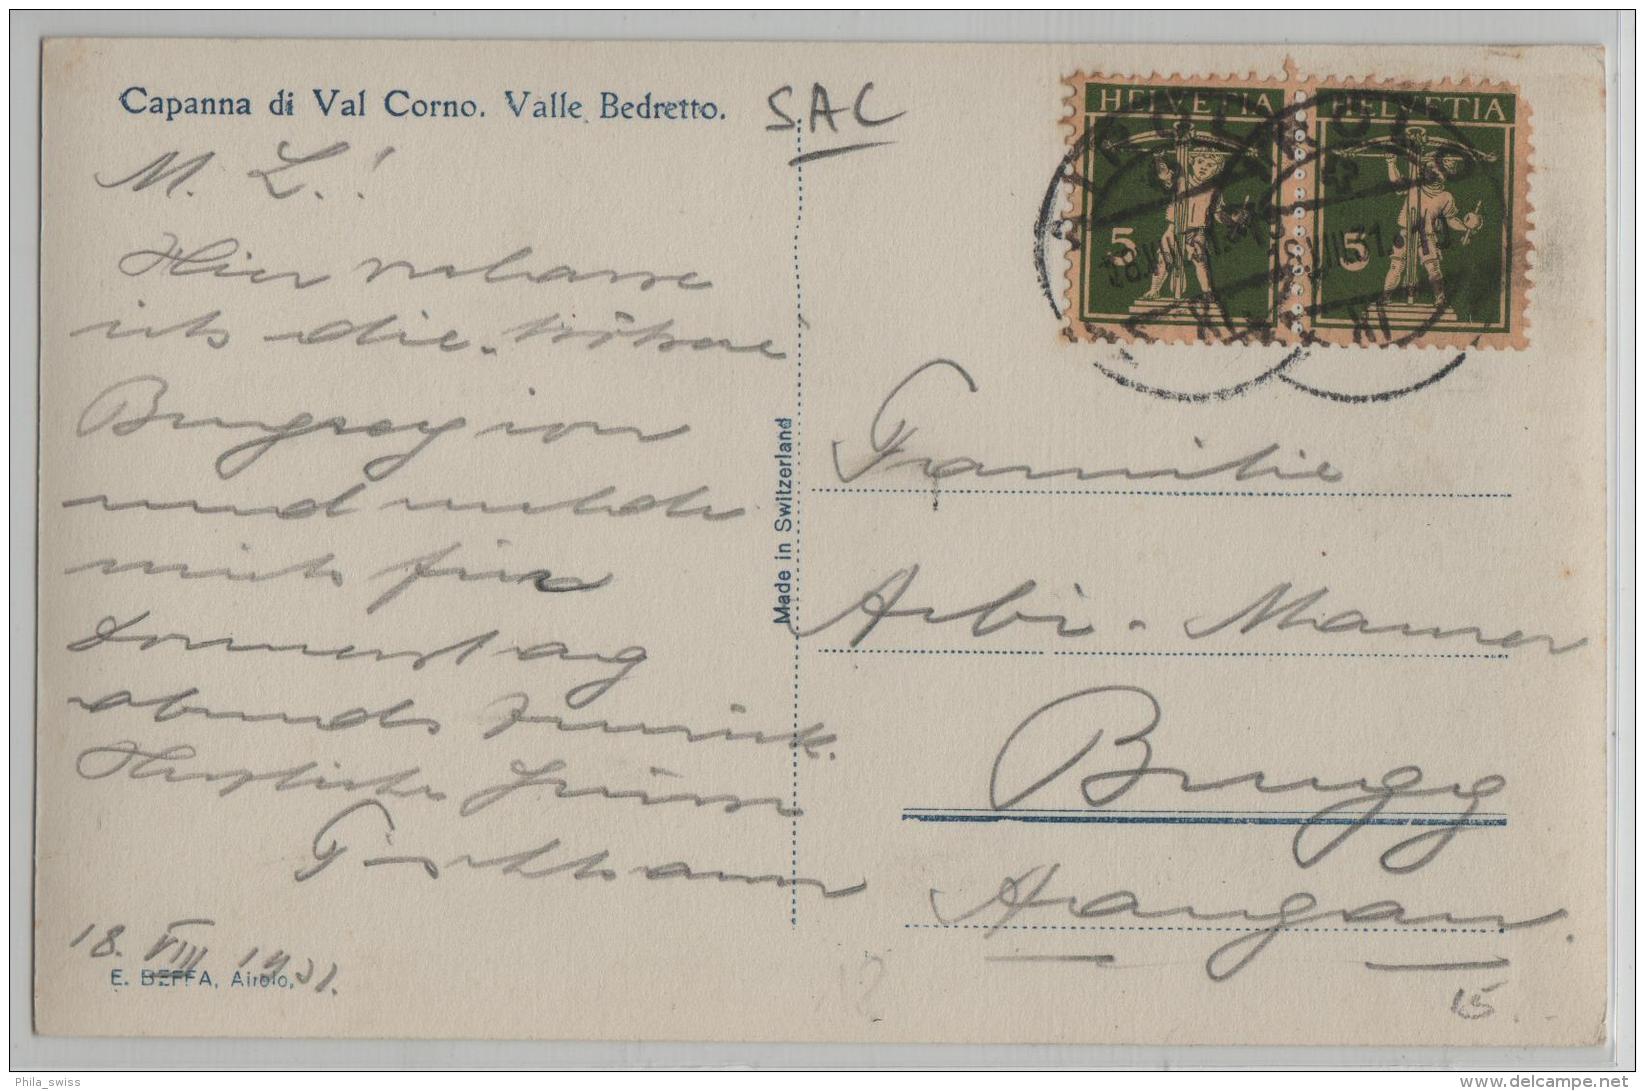 Capanna di Val Corno. Valle Bedretto.
SAC
M. L.!
Hier verlasse
ich die höhere
Bergregion
und melde
mich für
Donnerstag
abends zurück.
Herzliche Grüsse
18. VIII 1931.
E. BEFFA, Airolo.
Made in Switzerland
HELVETIA
5
HELVETIA
5
AIROLO
18.VIII.31.-19
AIROLO
18.VIII.31.-19
Familie
Maurer
Brugg
Aargau.
15
Phila_swiss
delcampe.net